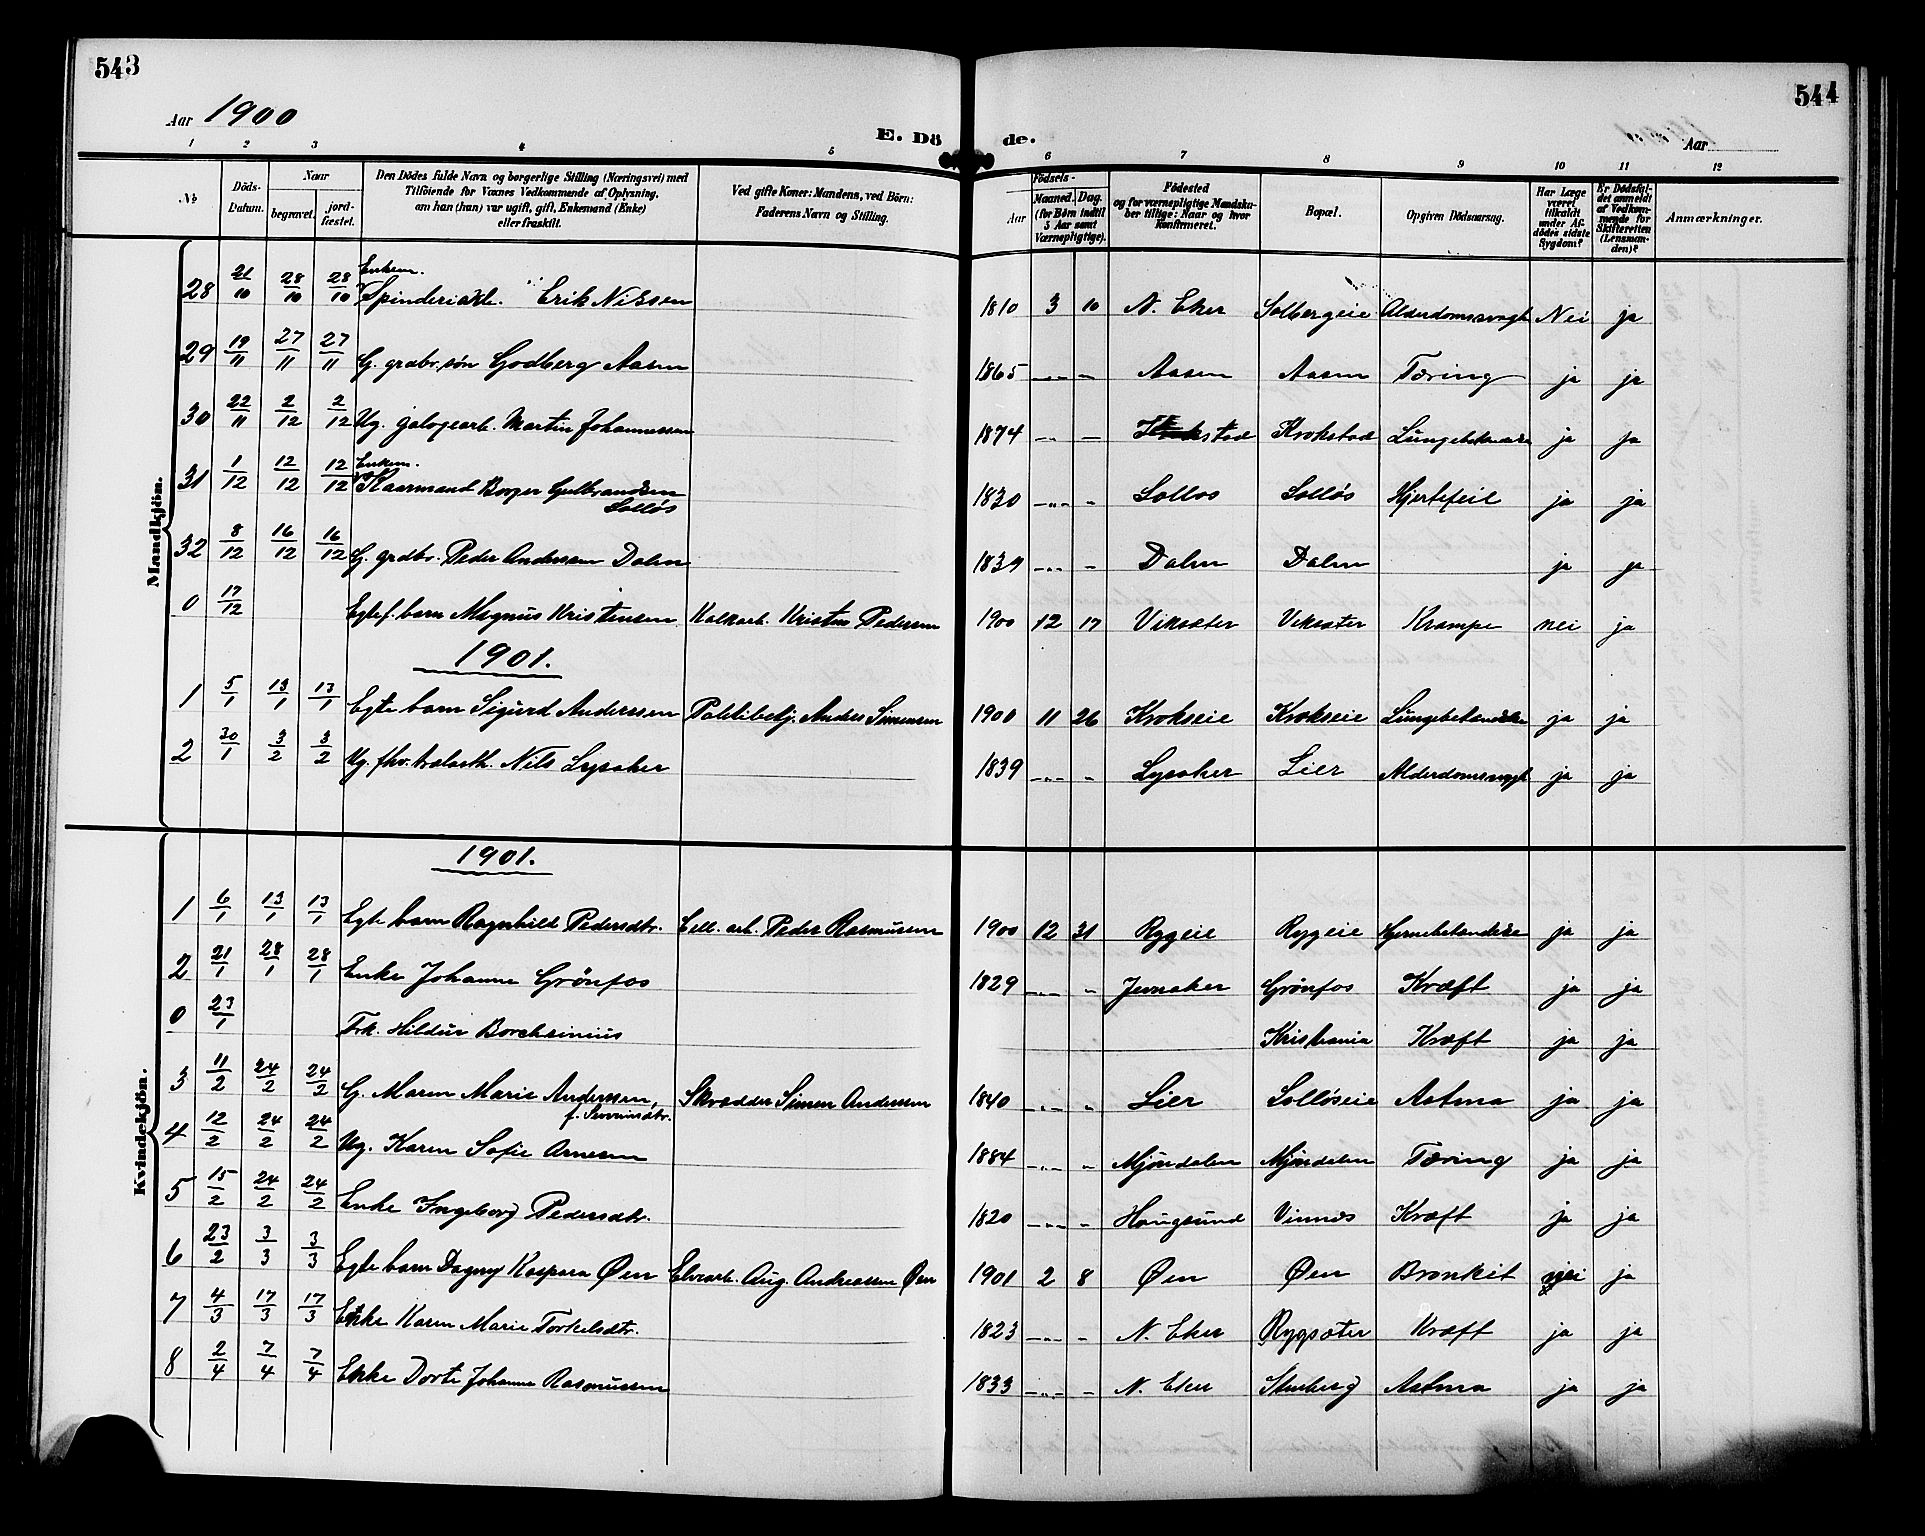 543
544
Aar 1900
E. Döde.
Aar
1 2 3 4 5 6 7 8 9 10 11 12
№
Döds-Datum.
Naar
begravet.
jord-fæstet.
Den Dödes fulde Navn og borgerlige Stilling (Næringsvei) med
Tilföiende for Voxnes Vedkommende af Oplysning,
om han (hun) var ugift, gift, Enkemand (Enke)
eller fraskilt.
Ved gifte Koner: Mandens, ved Börn:
Faderens Navn og Stilling.
Födsels-
Aar
Maaned. Dag.
(for Börn indtil
5 Aar samt
Værnepligtige).
Födested
og for værnepligtige Mandska-
ber tillige: Naar og hvor
Konfirmeret.
Bopæl.
Opgiven Dödsaarsag.
Har Læge
været
tilkaldt
under Af-
dödes sidste
Sygdom?
Er Dödsfal-
det anmeldt
af Vedkom-
mende for
Skifteretten
(Lensman-
den)?
Anmærkninger.
Mandkjön.
Enkem.
28 21/10 28/10 28/10 Spinderiarb. Erik Nilssen 1810 3 10 N. Eker Solbergeie Alderdomssvagh Nei ja
29 19/11 27/11 27/11 G. grdbr. søn Godberg Aasen 1865 -"- - Aasen Aasen Tæring ja ja
30 22/11 2/12 2/12 Ug. galogearb. Martin Johannessen 1874 -"- - Krokstad Lungebetændelse ja ja
Enkem.
31 1/12 12/12 12/12 Kaarmand Borger Gulbrandsen 1830 -"- " Solløs Solløs Hjertefeil ja ja
Solløs
32 8/12 16/12 16/12 G. grdbr. Peder Andersen Dalen 1839 -"- - Dalen Dalen ja ja
0 17/12 Egtef. barn Magnus Kristensen Kalkarb. Kristen Pedersen 1900 12 17 Veksæter Veksæter Krampe nei ja
1901.
1 5/1 13/1 13/1 Egte barn Sigurd Anderssen Politibetj. Anders Simensen 1900 11 26 Krokseie Krokseie Lungebetændelse ja ja
2 30/1 3/2 3/2 Ug. fhv. Nils Lysaker 1839 -"- " Lysaker Lier Alderdomssvagh ja ja
Kvindekjön.
1901.
1 6/1 13/1 13/1 Egte barn Ragnhild Pedersdtr. Cell. arb. Peder Rasmussen 1900 12 31 Rygeie Rygeie Hjernebetændelse ja ja
2 21/1 28/1 28/1 Enke Johanne Grönfos 1829 -"- " Jevnaker Grönfos Kræft ja ja
0 23/1 Frk. Hildur Borchsenius Kristiania Kræft ja ja
3 11/2 24/2 24/2 G. Maren Marie Anderssen, Skrædder Simen Andersen 1840 -"- " Lier Solløseie Astma ja ja
4 12/2 24/2 24/2 Ug. Karen Sofie Arnesen 1884 -"- " Mjøndalen Mjøndalen Tæring ja ja
5 15/2 24/2 24/2 Enke Ingeborg Pedersdtr. 1820 -"- " Hougsund Vinnes Kræft ja ja
6 23/2 3/3 3/3 Egte barn Dagny Kaspara Øen Elvearb. Aug. Andreassen Øen 1901 2 8 Øen Øen Bronkit nei ja
7 4/3 17/3 17/3 Enke Karen Marie Torkelsdtr. 1823 -"- " N. Eker Rygsæter Kræft ja ja
8 2/4 7/4 7/4 Enke Dorte Johanne Rasmussen 1833 -"- - N. Eker Stenberg Astma ja ja